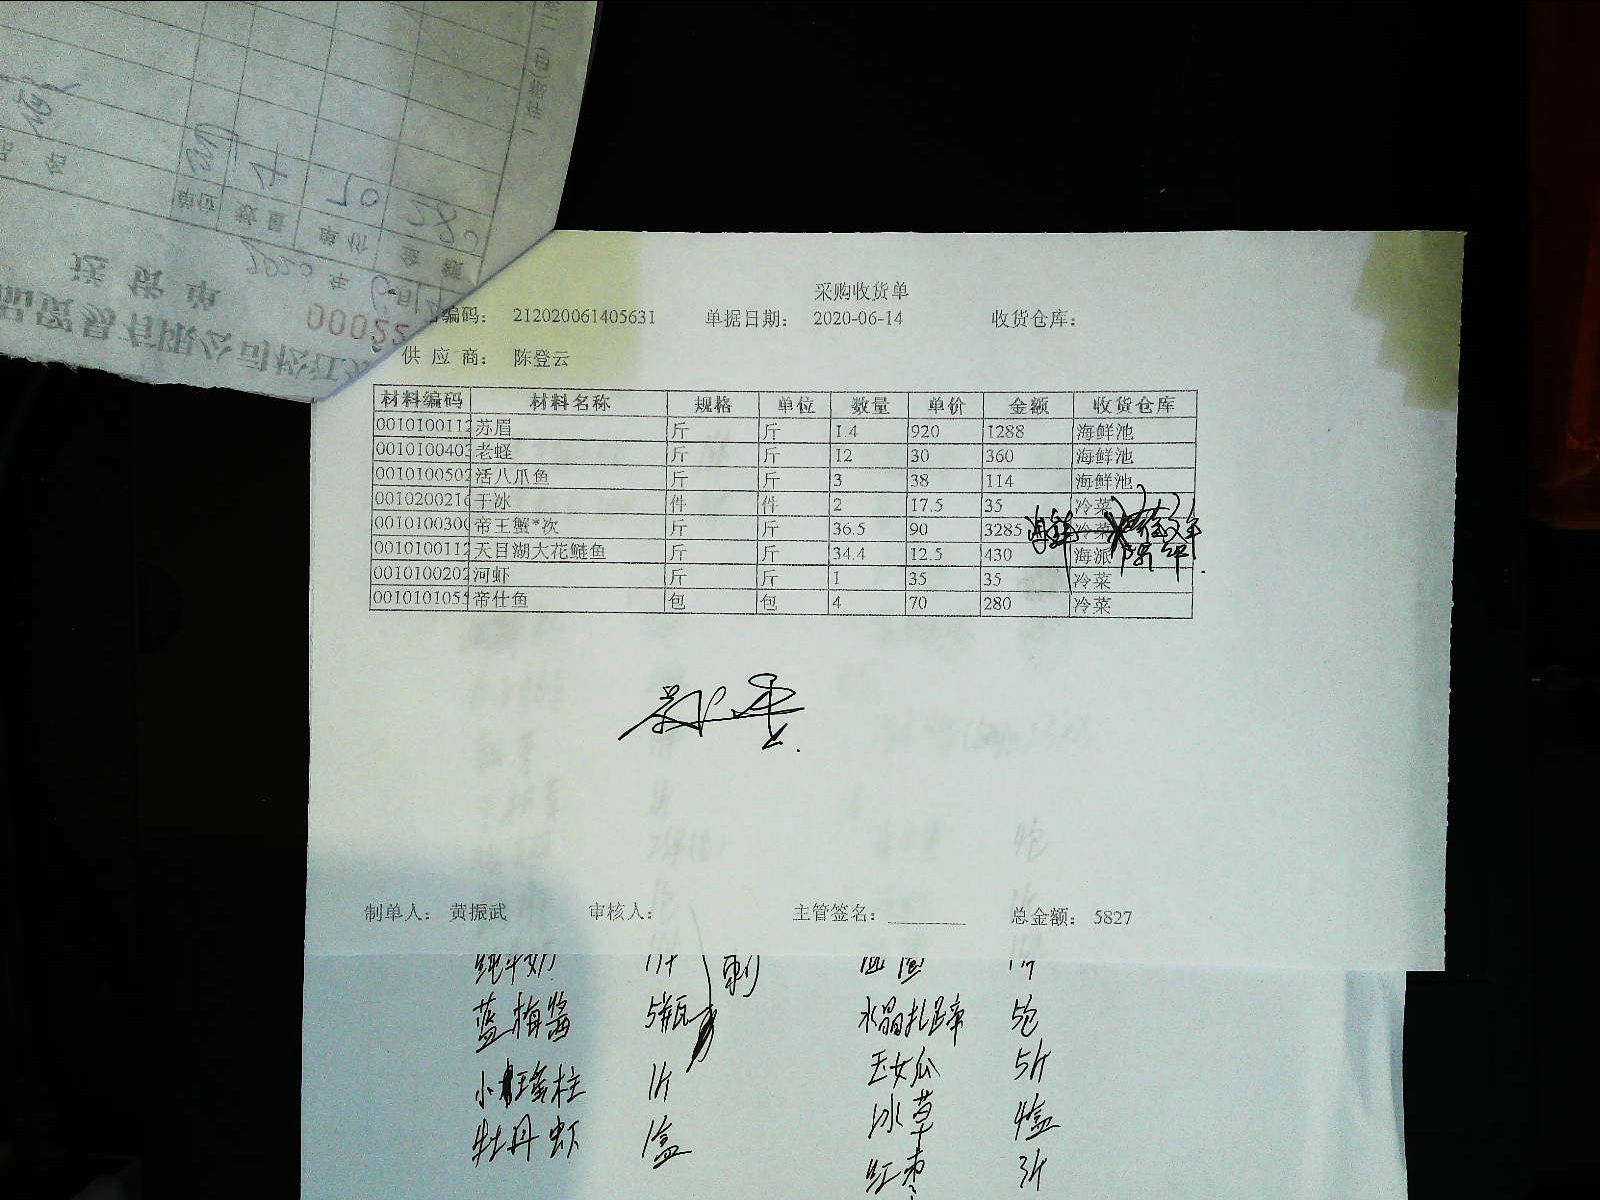 采购收货单
编码： 212020061405631 单据日期： 2020-06-14 收货仓库：
供应商： 陈登云
材料编码 材料名称 规格 单位 数量 单价 金额 收货仓库
0010100112 苏眉 斤 斤 1.4 920 1288 海鲜池
001010040 老蛏 斤 斤 12 30 360 海鲜池
0010100502 活八爪鱼 斤 斤 3 38 114 海鲜池
001020021 干冰 件 件 2 17.5 35 冷菜
001010030 帝王蟹*次 斤 斤 36.5 90 3285 海鲜 冷菜
0010100112 天目湖大花鲢鱼 斤 斤 34.4 12.5 430 海派
0010100202 河虾 斤 斤 1 35 35 冷菜
001010105 帝仕鱼 包 包 4 70 280 冷菜
制单人： 黄振武 审核人： 主管签名： 总金额： 5827
纯牛奶 1件 刺
蓝梅酱 5瓶 水晶扎蹄 5包
玉女瓜 5斤
小瑶柱 1斤 冰草 4盒
牡丹虾 1盒 红枣 3斤
送货单
00022
2020 年 6 月 14
单位 数量 单价 金额
4 70 280